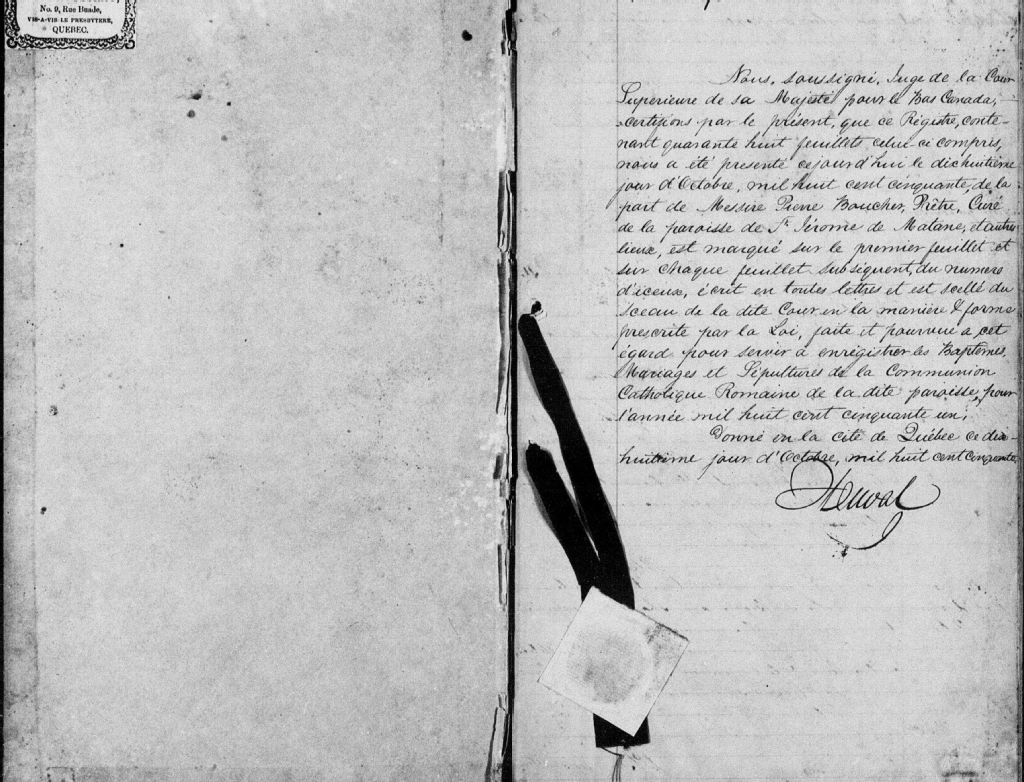 No. 9, Rue Buade,
VIS-A-VIS LE PRESBYTERE,
QUEBEC.
Nous, soussigné, Juge de la Cour
Superieure de sa Majesté pour le Bas Canada,
certifions par le présent, que ce Régistre, conte-
nant quarante huit feuillets celui-ci compris,
nous a été presenté cejourd'hui le dichuitième
jour d'Octobre, mil huit cent cinquante, de la
part de Messire Pierre Boucher, Prêtre, Curé
de la paroisse de St. Jérome de Matane, et autres
lieux, est marqué sur le premier feuillet et
sur chaque feuillet subséquent, du numero
d'iceux, écrit en toutes lettres et est scellé du
sceau de la dite Cour en la manière & forme
prescrite par la Loi, faite et pourvue à cet
égard pour servir à enrégistrer les Baptemes,
Mariages et Sépultures de la Communion
Catholique Romaine de la dite paroisse, pour
l'année mil huit cent cinquante un;
Donné en la cité de Québec ce dix-
huitième jour d'Octobre, mil huit cent cinquante
Duval